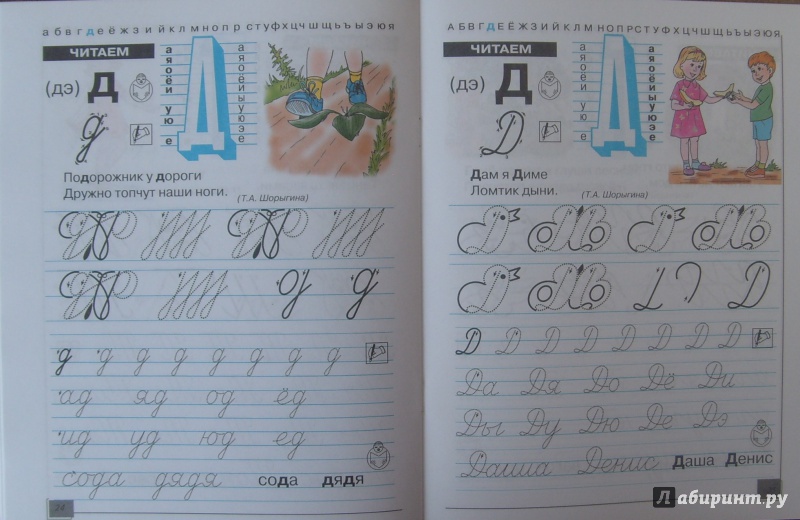 а б в г д е ё ж з и й к л м н о п р с т у ф х ц ч ш щ ь ъ ы э ю я
ЧИТАЕМ
(дэ) д
д
а
я
о
ё
и
у
ю
е
Д
а
я
о
ё
и
ы
у
ю
э
е
Подорожник у дороги
Дружно топчут наши ноги.
(Т.А. Шорыгина)
д
д д д д д д д д
ад яд од ёд
ид уд юд ед
сода дядя сода дядя
24
А Б В Г Д Е Ё Ж З И Й К Л М Н О П Р С Т У Ф Х Ц Ч Ш Щ Ь Ъ Ы Э Ю Я
ЧИТАЕМ
(дэ) Д
Д
а
я
о
ё
и
у
ю
е
Д
а
я
о
ё
и
ы
у
ю
э
е
Дам я Диме
Ломтик дыни.
(Т.А. Шорыгина)
Д
Д Д Д Д Д Д Д Д
Да Дя До Дё Ди
Ды Ду Дю Де Дэ
Даша Денис Даша Денис
Лабиринт.ру